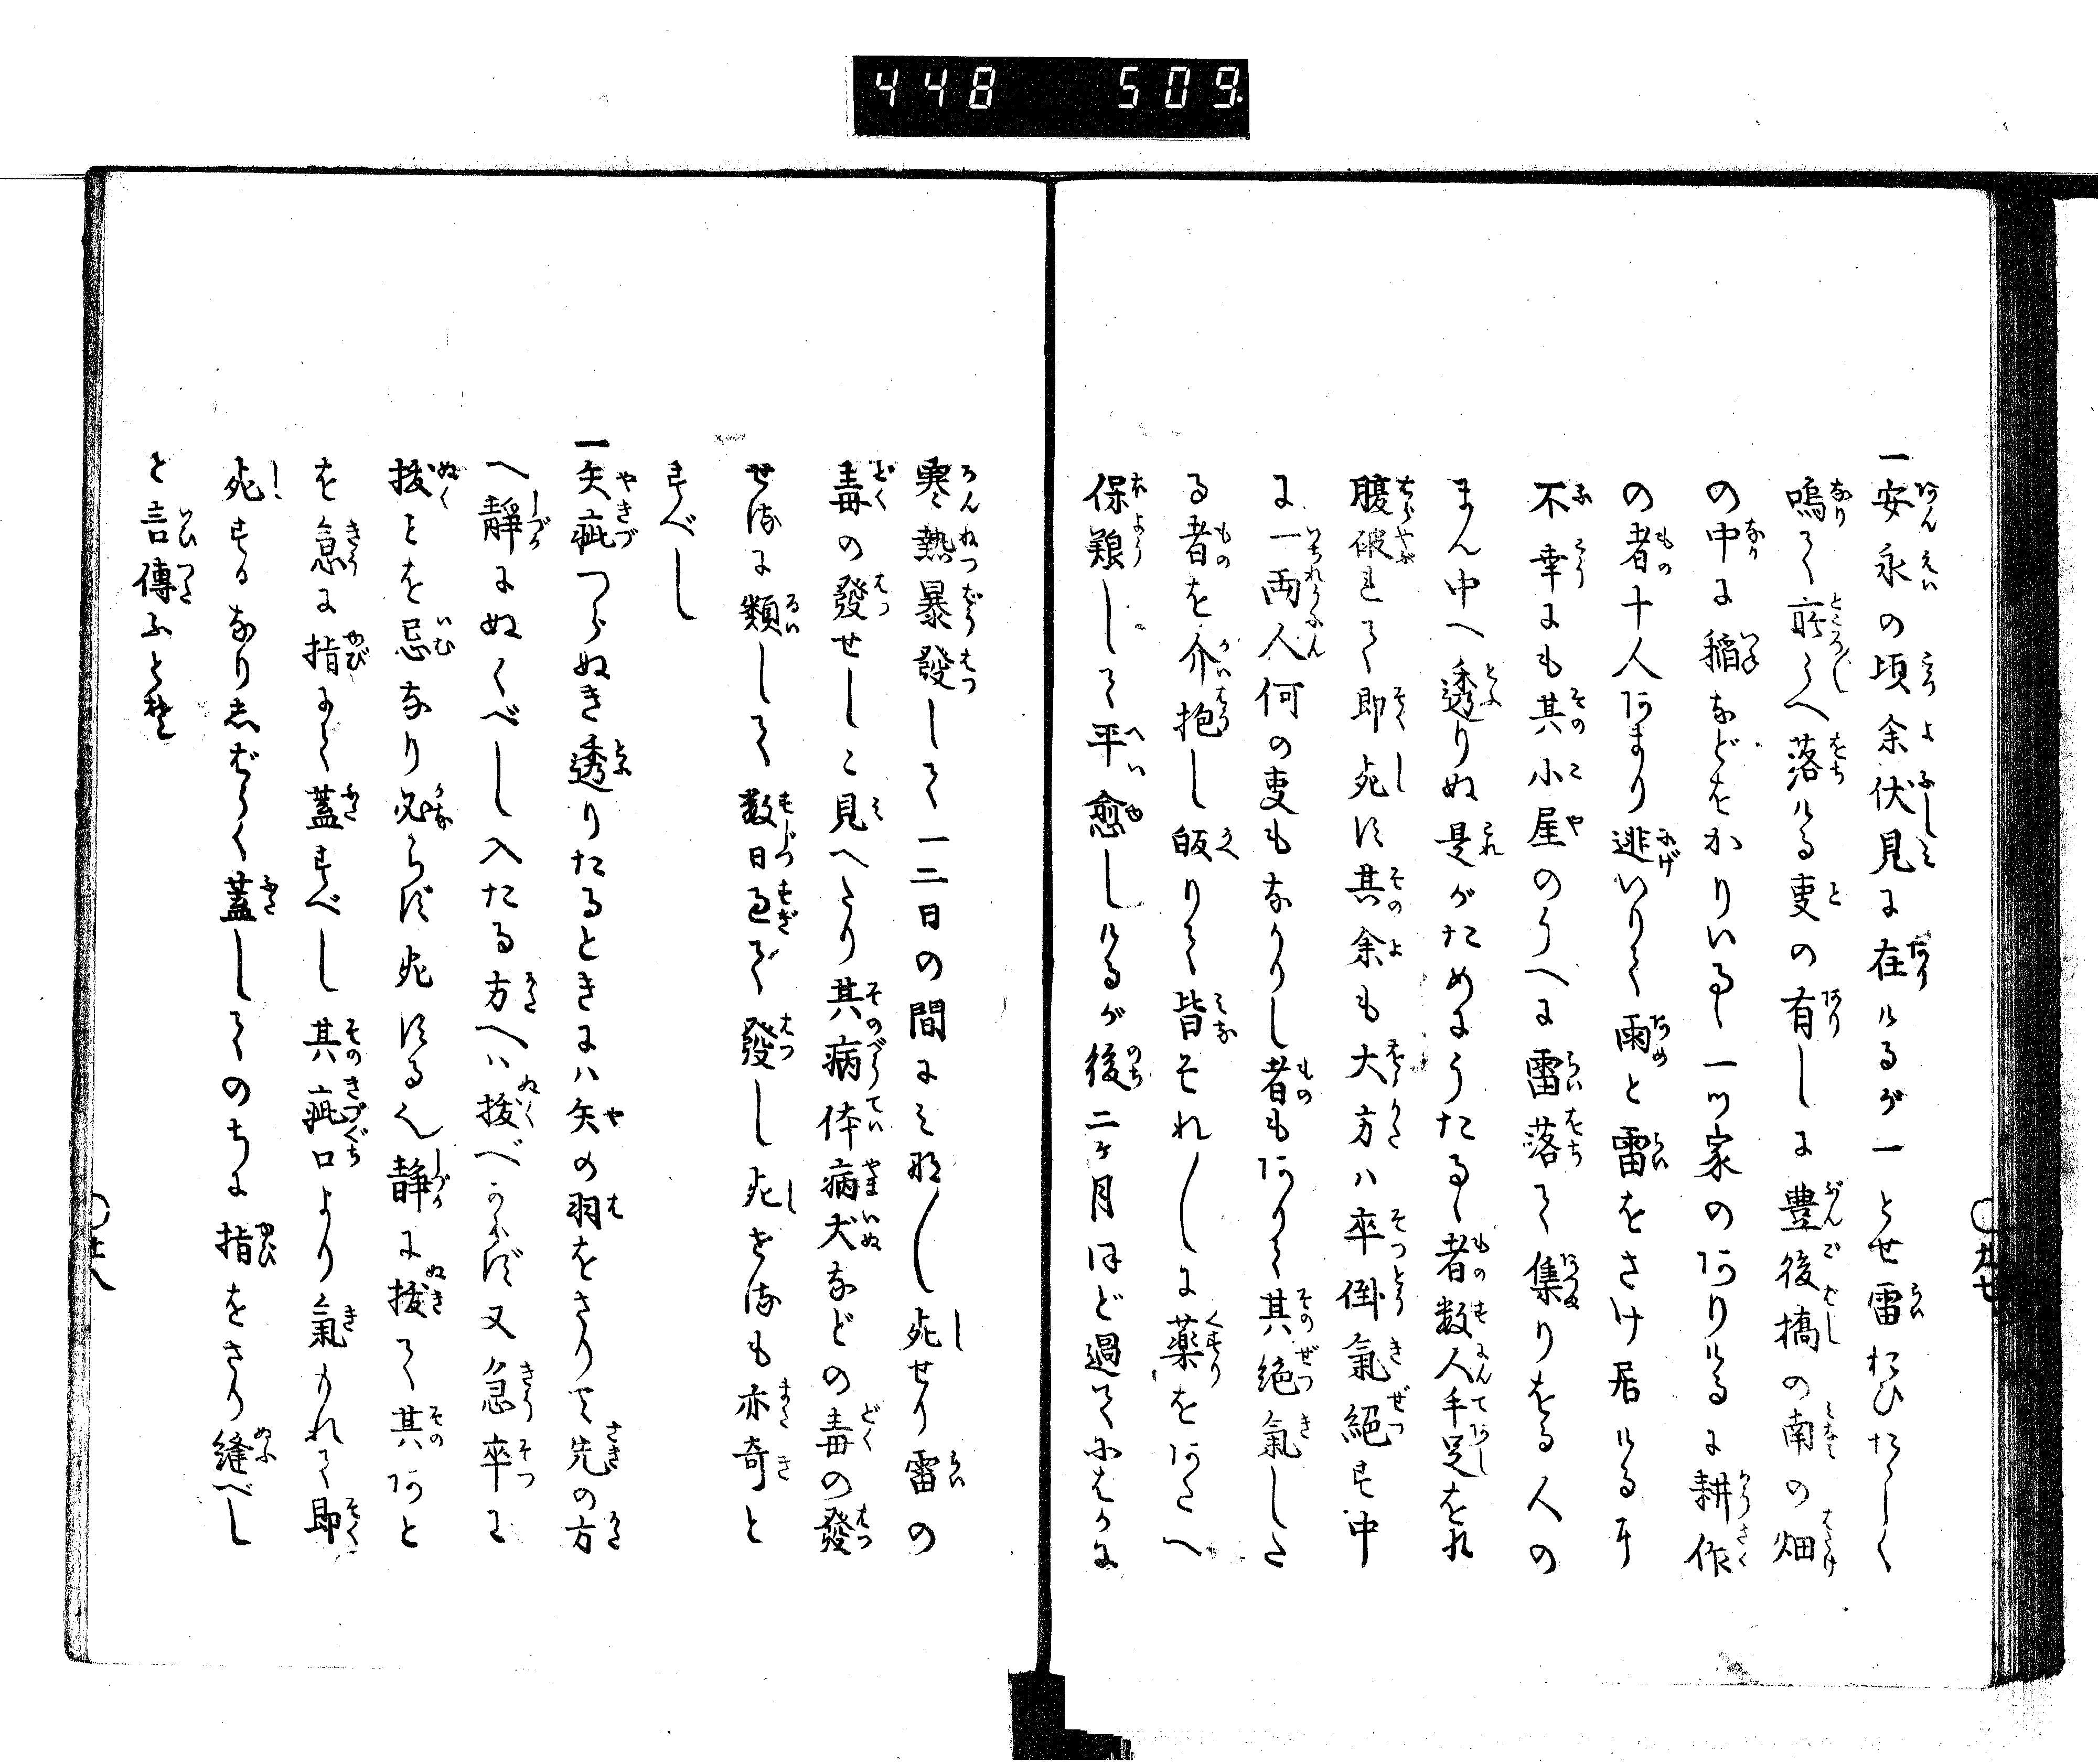 448 509
一安永の頃余伏見に在けるが一とせ雷おひたゝしく
鳴て所々へ落ける事の有しに豊後橋の南の畑
の中に稲などをかりいるゝ一ツ家のありけるに耕作
の者十人あまり逃いりて雨と雷をさけ居ける所
不幸にも其小屋のうへに雷落て集りをる人の
まん中へ透りぬ是がためにうたるゝ者数人手足をれ
腹破れて即死す其余も大方ハ卒倒氣絶す中
に一両人何の事もなかりし者もありて其絶氣した
る者を介抱し皈りて皆それ〳〵に薬をあたへ
保養して平愈しけるが後二ケ月ほど過てにはかに
寒熱暴發して一二日の間にみな〳〵死せり雷の
毒の發せしと見へたり其病体病犬などの毒の發
せるに類して数日過て發し死せるも亦奇と
すべし
一矢疵つらぬき透りたるときにハ矢の羽をさりて先の方
へ靜にぬくべし入たる方へハ拔べからず又急卒に
拔ことを忌なり必らず死する也静に拔て其あと
を急に指にて蓋すべし其疵口より氣もれて即
死するなり志ばらく蓋してのちに指をさり縫べし
と言傳ふとぞ